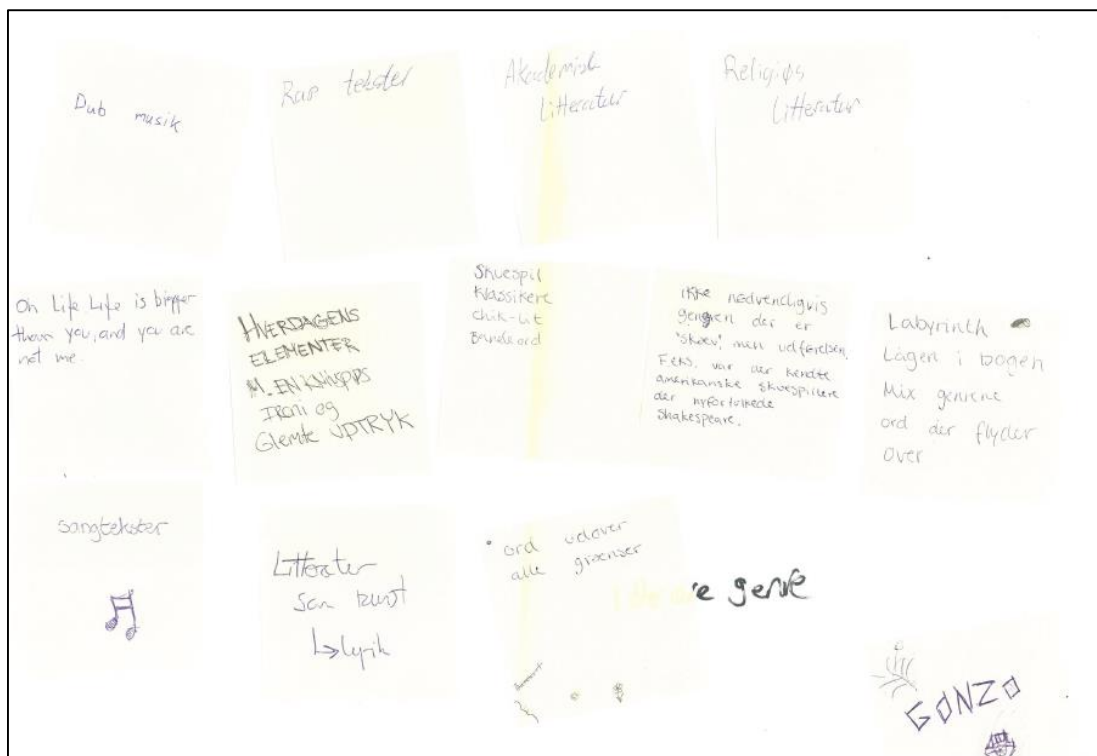 Dub musik
Rap tekster
Akademisk
Litteratur
Religiøs
Litteratur
Oh Life Life is bigger
than you, and you are
not me.
HVERDAGENS
ELEMENTER
M. EN KNIVSPIDS
IRONI og
Glemte UDTRYK
Skuespil
Klassikere
chik-lit
Bandeord
ikke nødvendigvis
genren der er
"skæv", men udførelsen.
F.eks. var der kendte
amerikanske skuespillere
der nyfortolkede
Shakespeare.
Labyrinth
Lågen i bogen
Mix genrene
ord der flyder
over
sangtekster
Litteratur
som kunst
↳ lyrik
ord udover
alle grænser
genre
GONZO